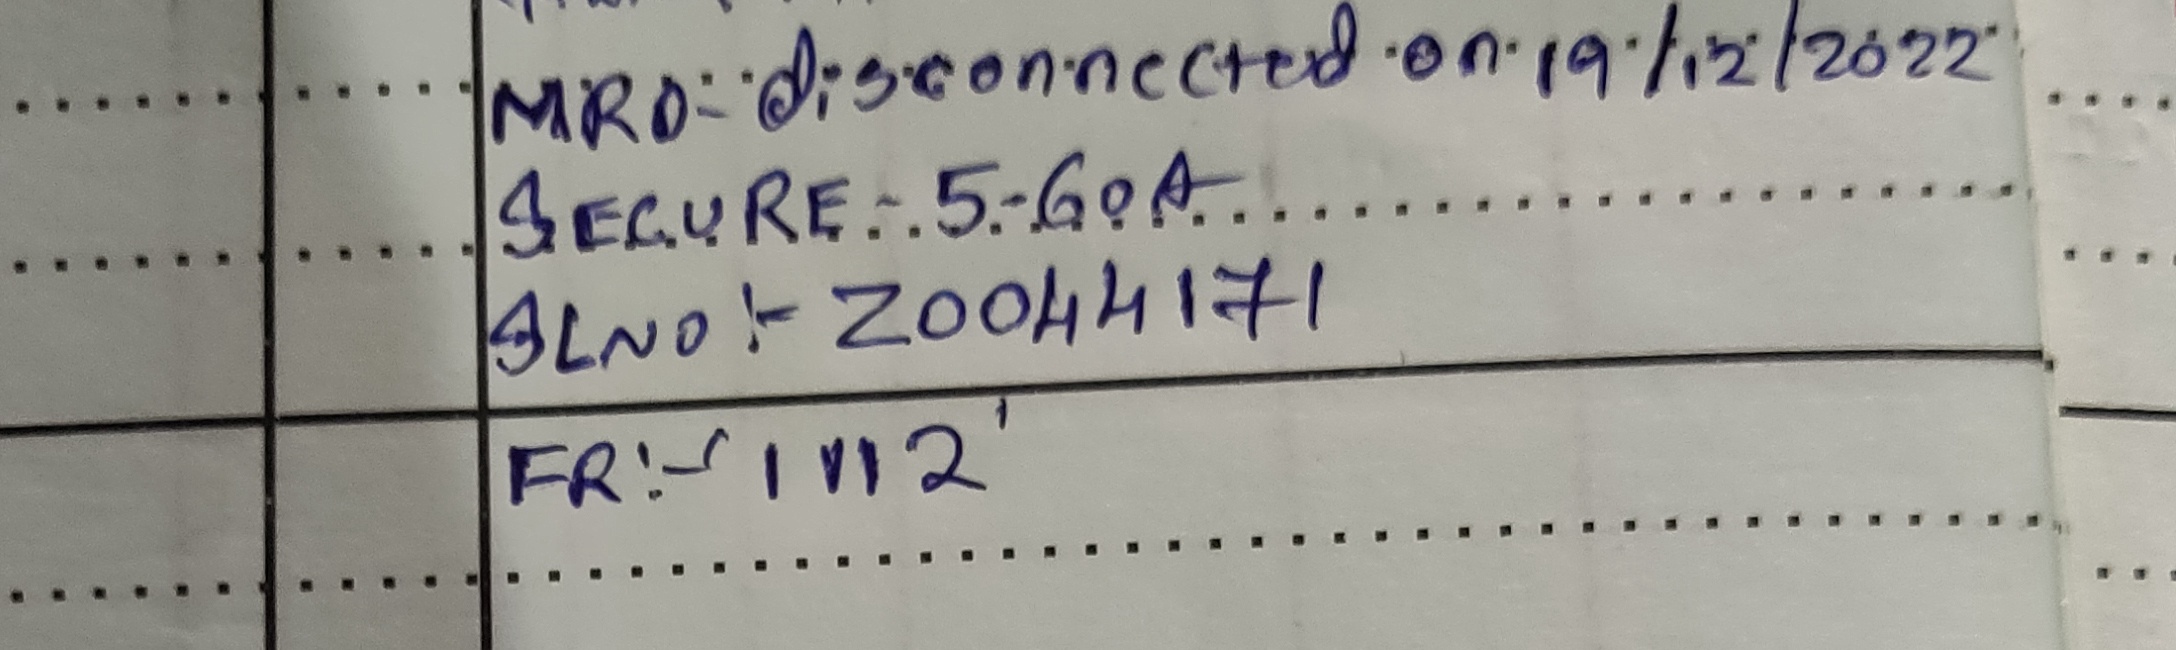 MRD:- disconnected on 19/12/2022
SECURE:- 5-60A
SLNO:- Z0044171
FR:- 1112